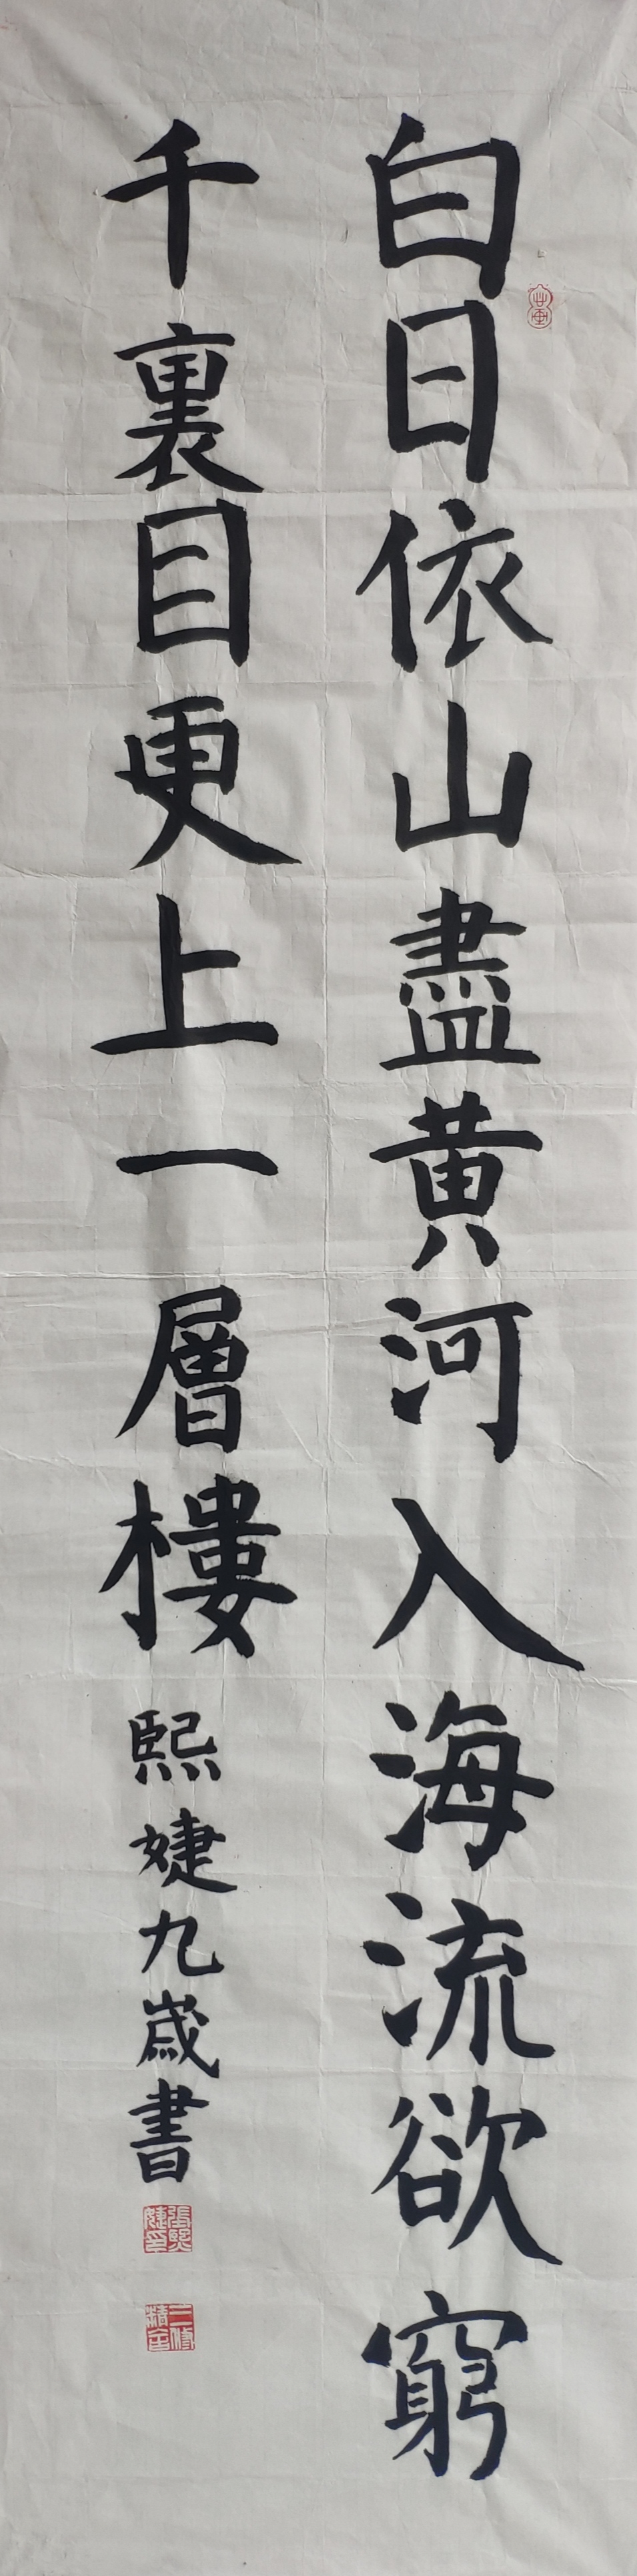 白日依山盡黄河入海流欲窮
千裏目更上一層樓
熙婕九歲書
張熙婕印